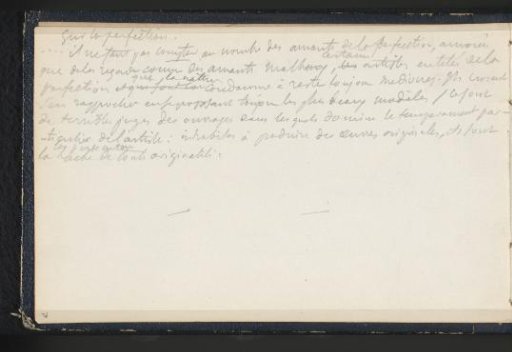 Sur la perfection.
.... il ne faut pas compter au nombre des amants de la perfection, amour
que de la regarder comme des amants malheureux, certains artistes entêtés de la
perfection et que la nature condamne à rester toujours médiocres. Ils croient
s'en rapprocher en se proposant toujours les plus beaux modèles, ils sont
de terribles juges des ouvrages dans lesquels domine le tempérament par-
ticulier de l'artiste: inhabiles à produire des œuvres originales, ils sont
les
la de toute originalité.